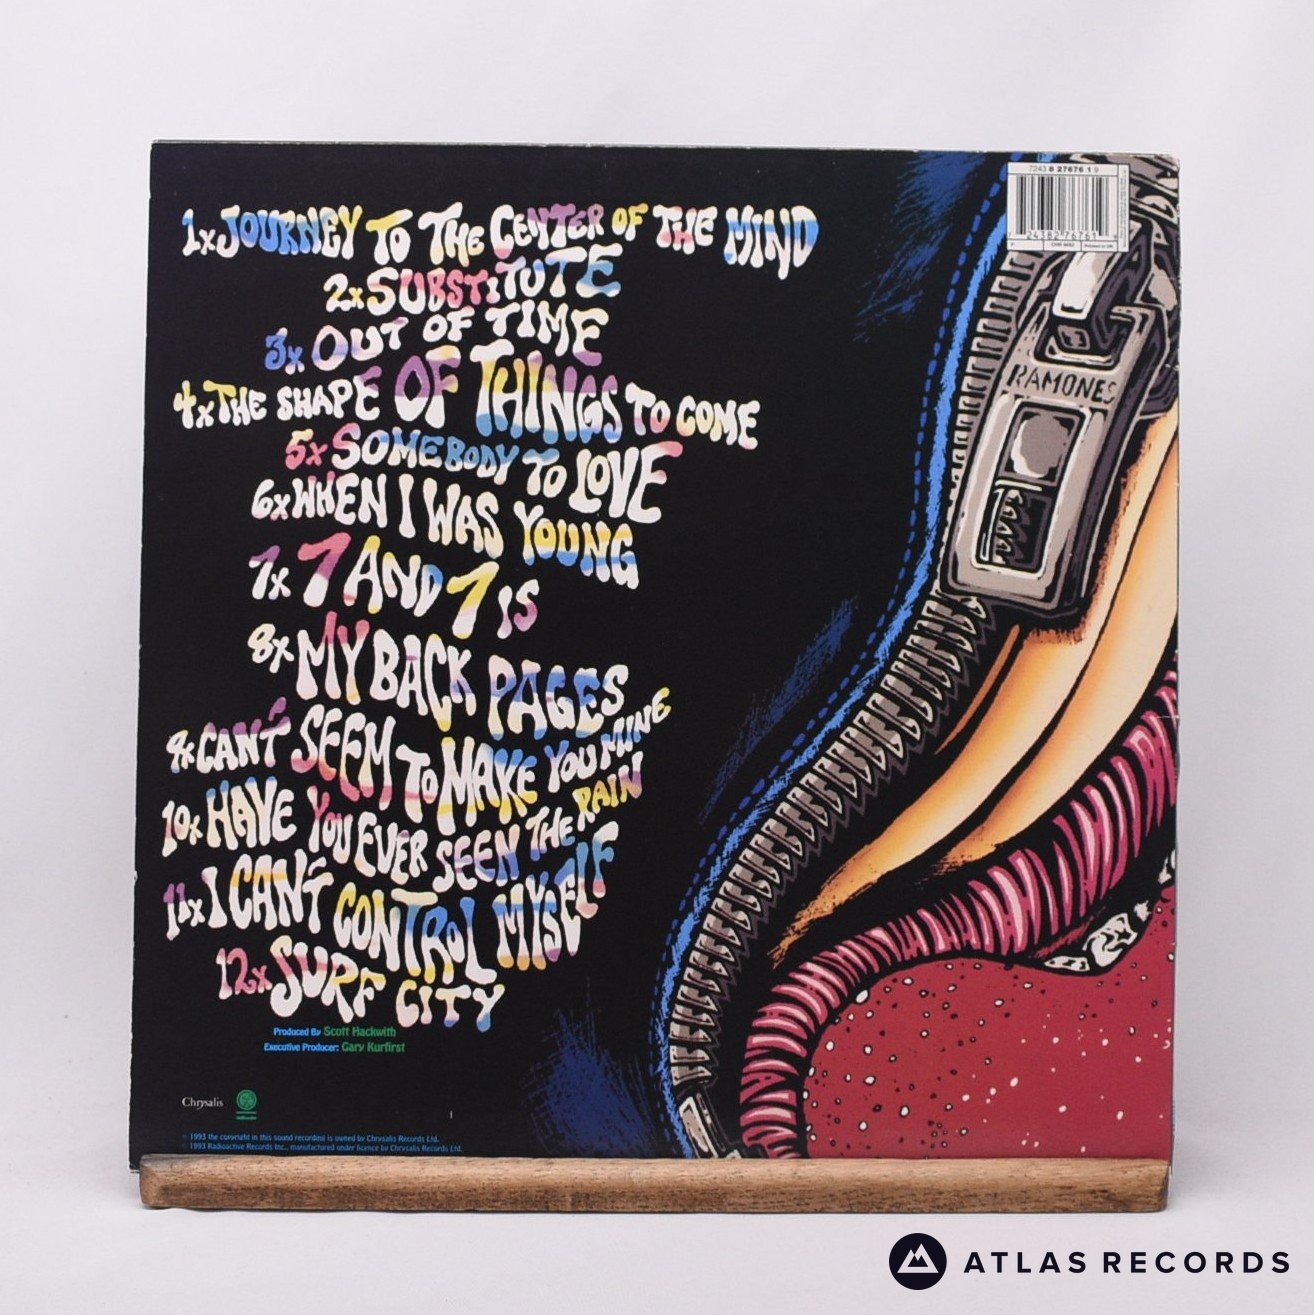 1x JOURNEY TO THE CENTER OF THE MIND
2x SUBSTITUTE
3x OUT OF TIME
4x THE SHAPE OF THINGS TO COME
5x SOMEBODY TO LOVE
6x WHEN I WAS YOUNG
7x 7 AND 7 IS
8x MY BACK PAGES
9x CAN'T SEEM TO MAKE YOU MINE
10x HAVE YOU EVER SEEN THE RAIN
11x I CAN'T CONTROL MYSELF
12x SURF CITY
Produced By Scott Hackwith
Executive Producer: Gary Kurfirst
Chrysalis
1993 the copyright in this sound recording is owned by Chrysalis Records Ltd.
1993 Radioactive Records Inc., manufactured under licence by Chrysalis Records Ltd.
7243 8 27676 1 9
RAMONES
ATLAS RECORDS